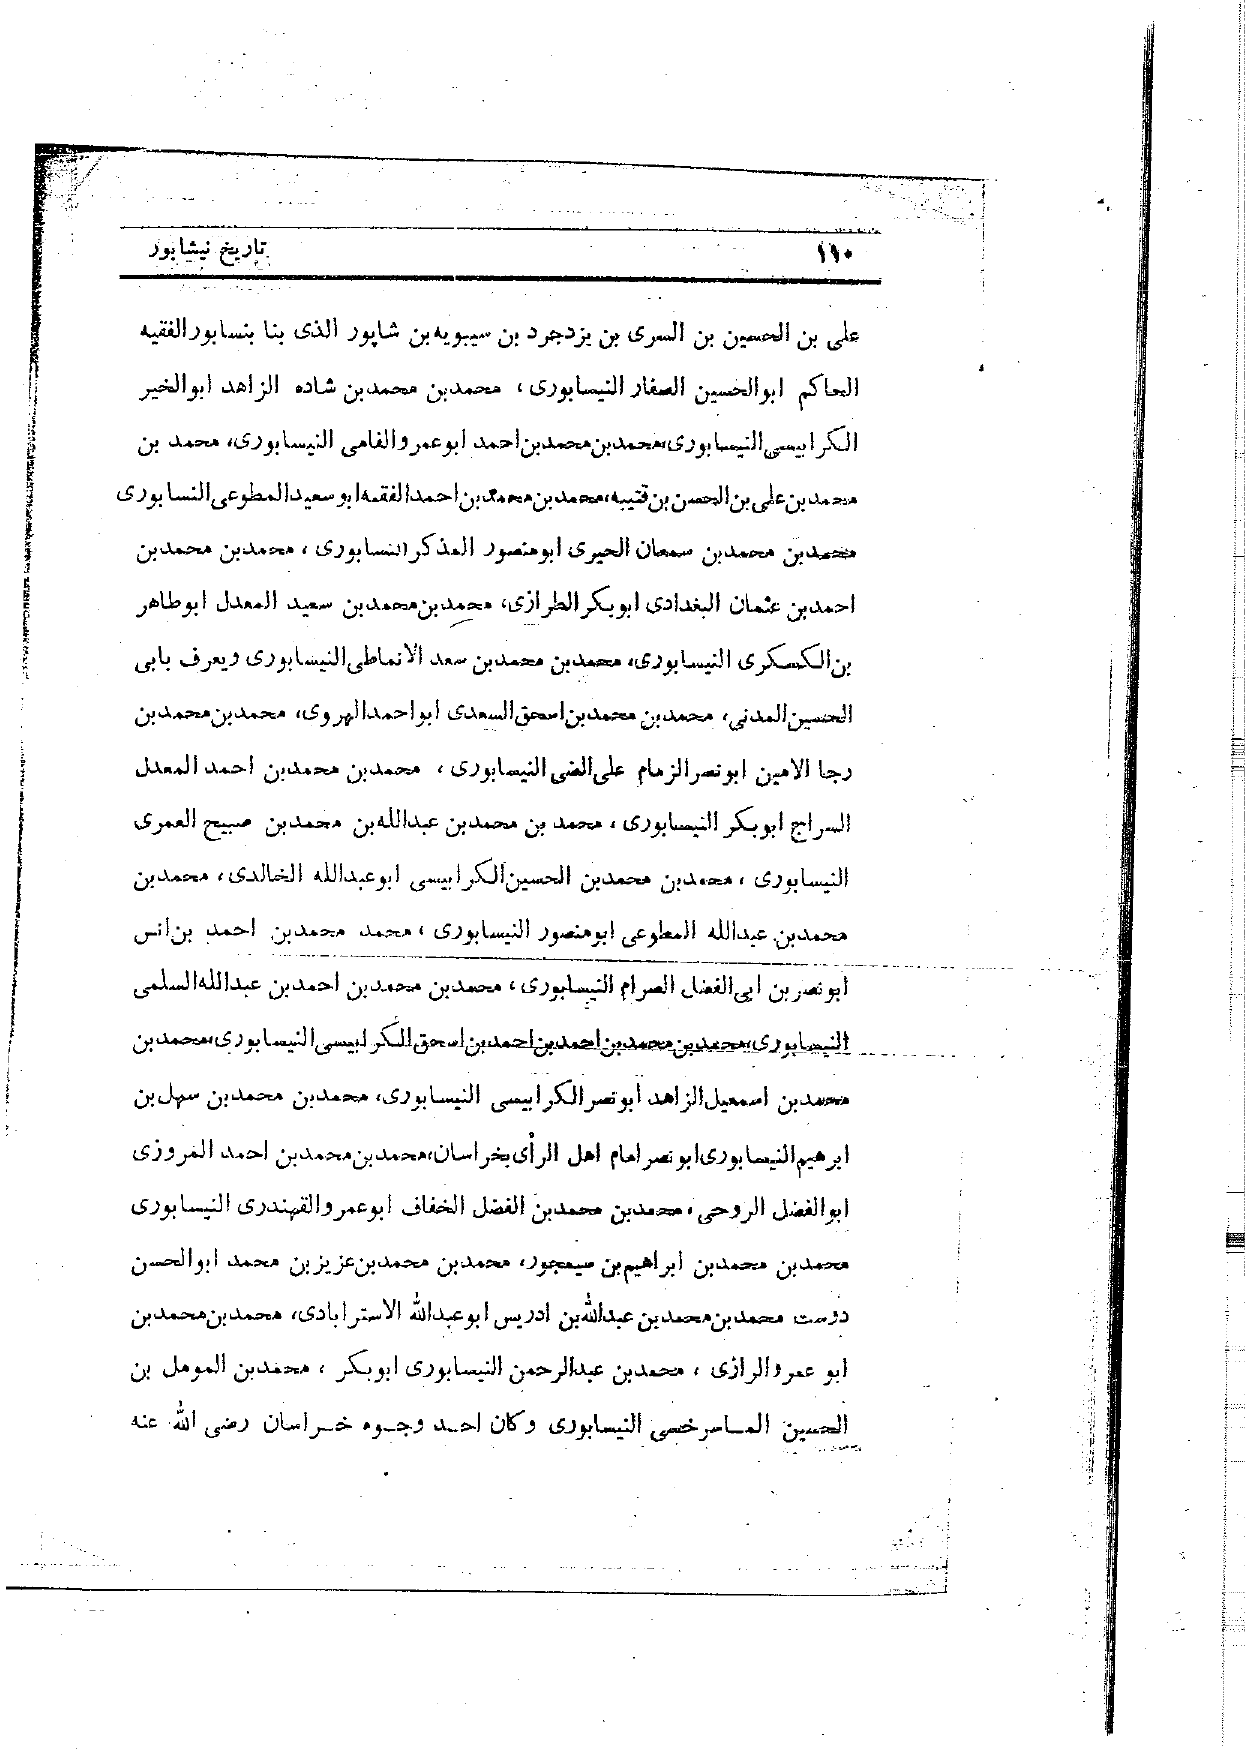 ۱۱۰ تاریخ نیشابور
علی بن الحسین بن السری بن یزدجرد بن سیبویه‌بن شاپور الذی بنا بنسابورالفقیه
الحاکم ابوالحسین الصفار النیسابوری ، محمدبن محمدبن شاده الزاهد ابوالخیر
الکرابیسی‌النیسابوری،محمدبن‌محمدبن‌احمد ابوعمروالفامی النیسابوری، محمد بن
محمدبن‌علی‌بن‌الحسن‌بن‌قتیبه،محمدبن‌محمدبن‌احمدالفقیه‌ابوسعیدالمطوعی‌النسابوری
محمدبن محمدبن سمعان الحیری ابومنصور المذکرالنسابوری ، محمدبن محمدبن
احمدبن عثمان البغدادی ابوبکرالطرازی، محمدبن‌محمدبن سعید المعدل ابوطاهر
بن‌الکسکری النیسابوری، محمدبن محمدبن سعد الانماطی‌النیسابوری ویعرف بابی
الحسین‌المدنی، محمدبن محمدبن‌اسحق‌السعدی ابواحمدالهروی، محمدبن‌محمدبن
رجا الامین ابونصرالزمام علی‌الضی النیسابوری ، محمدبن محمدبن احمد المعدل
السراج ابوبکر النیسابوری ، محمد بن محمدبن عبدالله‌بن محمدبن صبیح العمری
النیسابوری ، محمدبن محمدبن الحسین‌الکرابیسی ابوعبدالله الخالدی ، محمدبن
محمدبن عبدالله المطوعی ابومنصور النیسابوری ، محمد محمدبن احمد بن‌انس
ابونصربن ابی‌الفضل الصرام النیسابوری ، محمدبن محمدبن احمدبن عبدالله‌السلمی
النیسابوری،محمدبن‌محمدبن‌احمدبن‌احمدبن‌اسحق‌الکرابیسی‌النیسابوری،محمدبن
محمدبن اسمعیل‌الزاهد ابونصرالکرابیسی النیسابوری، محمدبن محمدبن سهل‌بن
ابرهیم‌النیسابوری‌ابونصرامام اهل الرأی‌بخراسان،محمدبن‌محمدبن احمد المروزی
ابوالفضل الروحی ، محمدبن محمدبن الفضل الخفاف ابوعمروالقهندری النیسابوری
محمدبن محمدبن ابراهیم‌بن سیمجور، محمدبن محمدبن‌عزیزبن محمد ابوالحسن
درست محمدبن‌محمدبن عبدالله‌بن ادریس ابوعبدالله الاسترابادی، محمدبن‌محمدبن
ابو عمروالرازی ، محمدبن عبدالرحمن النیسابوری ابوبکر ، محمدبن المومل بن
الحسین المـاسرخسی النیسابوری وکان احـد وجـوه خـراسان رضی الله عنه